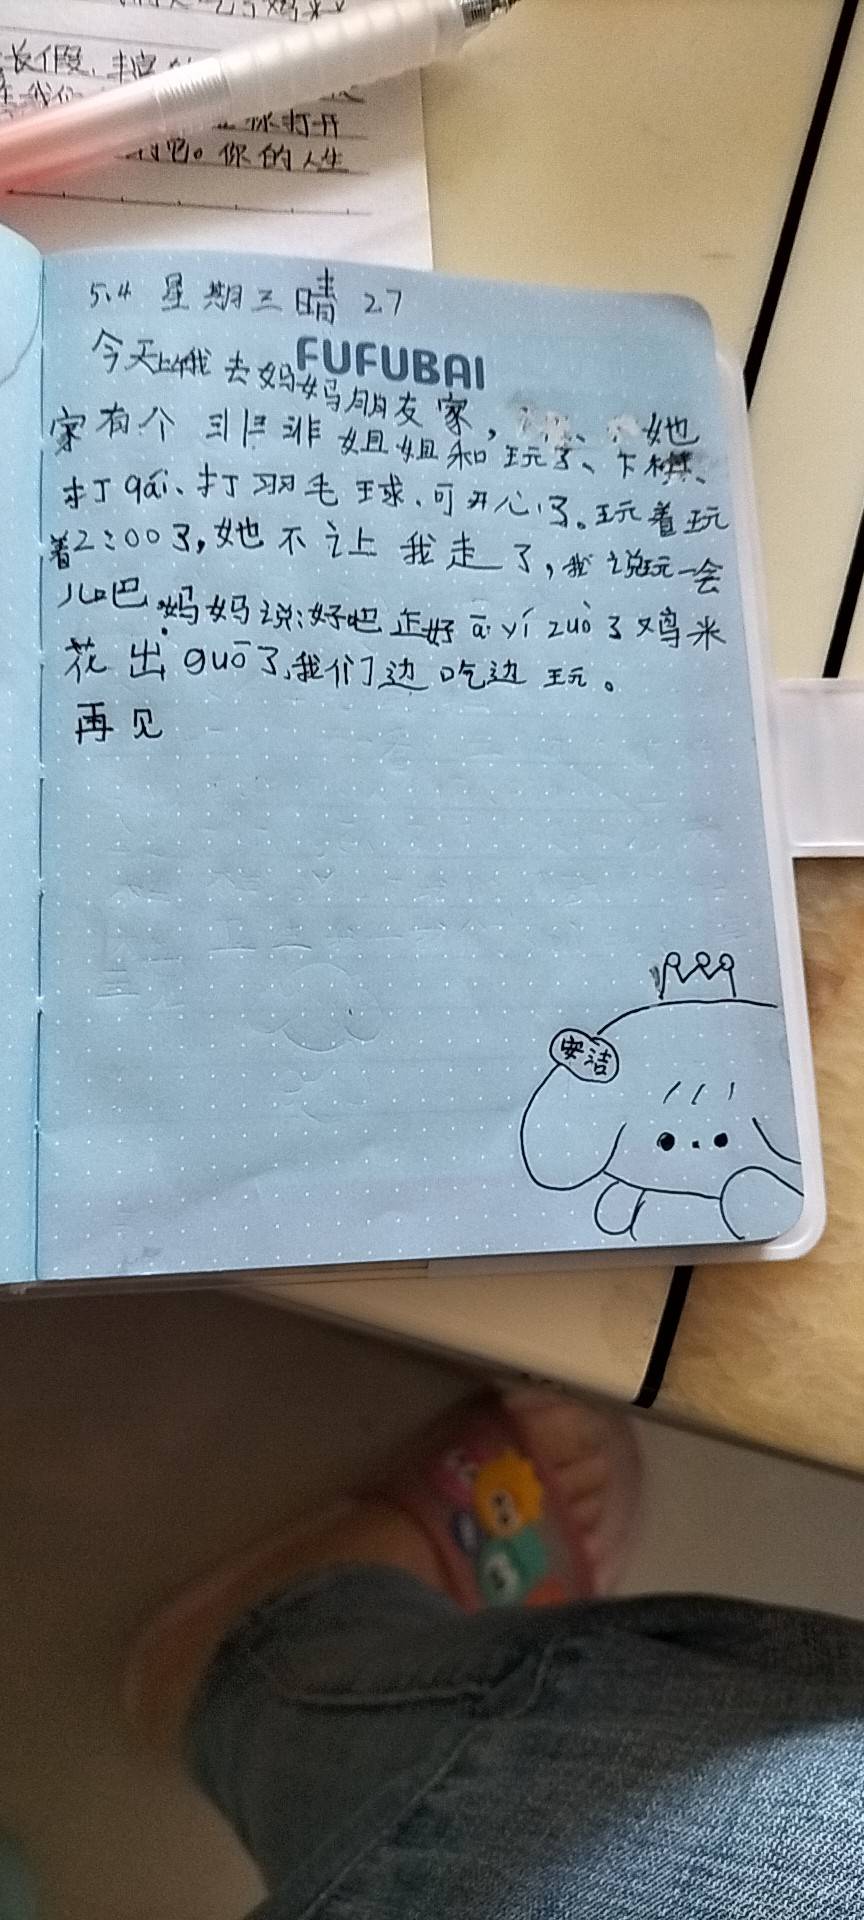 长假、丰富
我们
你打开
吧。你的人生
5.4 星期三 晴 27
今天上午我去妈妈朋友家,
FUFUBAI
她
家有个非非姐姐和玩了、下棋、
打gái、打羽毛球、可开心了。玩着玩
着2:00了,她不让我走了,我说玩一会
儿吧,妈妈说:好吧正好ā yí zuò了鸡米
花出guō了,我们边吃边玩。
再见
安洁